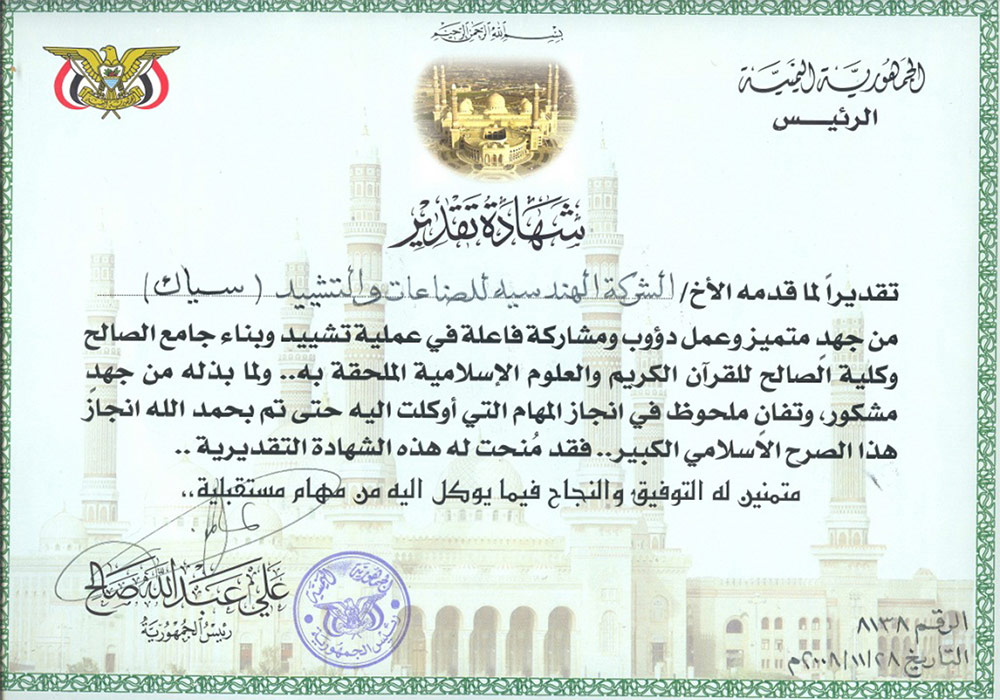 بسم الله الرحمن الرحيم
الجمهورية اليمنية
الرئيس
شهادة تقدير
تقديراً لما قدمه الأخ/ الشركة الهندسيه للصناعات والتشييد (سياك)
من جهدٍ متميز وعمل دؤوب ومشاركة فاعلة في عملية تشييد وبناء جامع الصالح
وكلية الصالح للقرآن الكريم والعلوم الإسلامية الملحقة به.. ولما بذله من جهدٍ
مشكور، وتفانٍ ملحوظ في انجاز المهام التي أوكلت اليه حتى تم بحمد الله انجاز
هذا الصرح الاسلامي الكبير.. فقد مُنحت له هذه الشهادة التقديرية ..
متمنين له التوفيق والنجاح فيما يوكل اليه من مهام مستقبلية،،
علي عبدالله صالح
رئيس الجمهورية
الجمهورية اليمنية
رئيس الجمهورية
الرقم ٨١٣٨
التاريخ ٢٠٠٨/١١/٢٨م